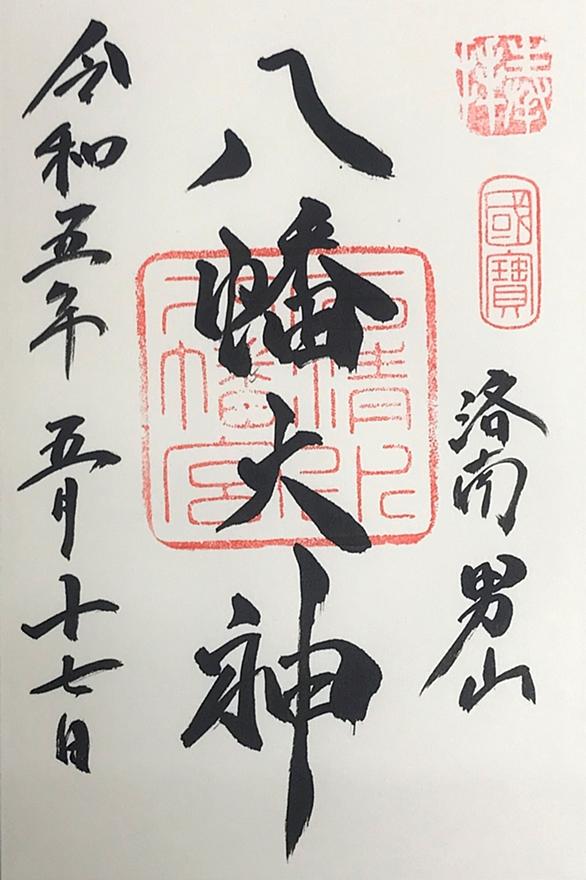 奉拝
國寶
洛南 男山
八幡大神
石清水八幡宮
令和五年 五月十七日